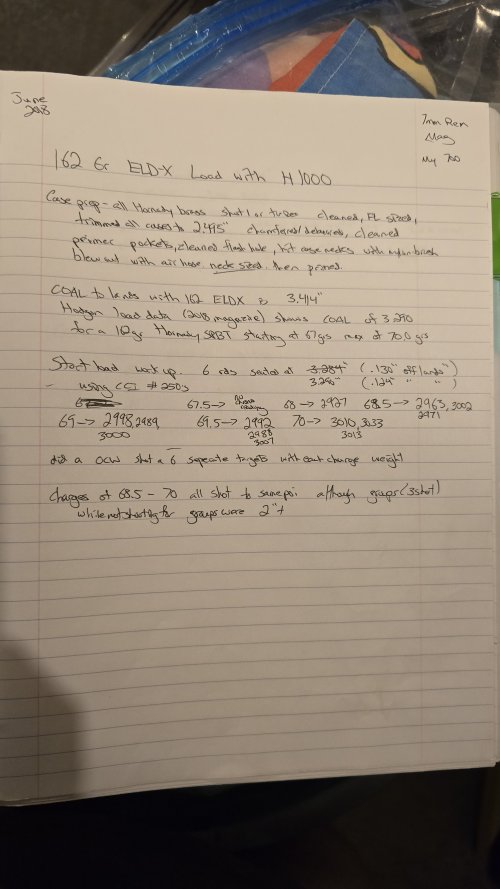 June
2018
7mm Rem
Mag
My 700
162 Gr ELD-X Load with H1000
Case prep - all Hornady brass shot 1 or twice cleaned, FL sized,
trimmed all cases to 2.495" chamfered/deburred, cleaned
primer pockets, cleaned flash hole, hit case necks with nylon brush
blew out with air hose, neck sized, then primed.
COAL to lands with 162 ELDX is 3.414"
Hodgdon load data (2018 magazine) shows COAL of 3.290
for a 162gr Hornady SPBT starting at 67grs max of 70.0 grs
Start load work up. 6 rds seated at 3.284" (.130" off lands")
3.290" (.124" " ")
- using CCI #250s
67.5 → no chrono reading 68 → 2937 68.5 → 2963, 3002
2971
69 → 2998, 2989, 69.5 → 2992 70 → 3010, 3033
3000 2988 3013
3007
did a OCW shot a 6 seperate targets with each charge weight
Charges of 68.5 - 70 all shot to same poi although groups (3 shot)
while not shooting for groups were 2"+